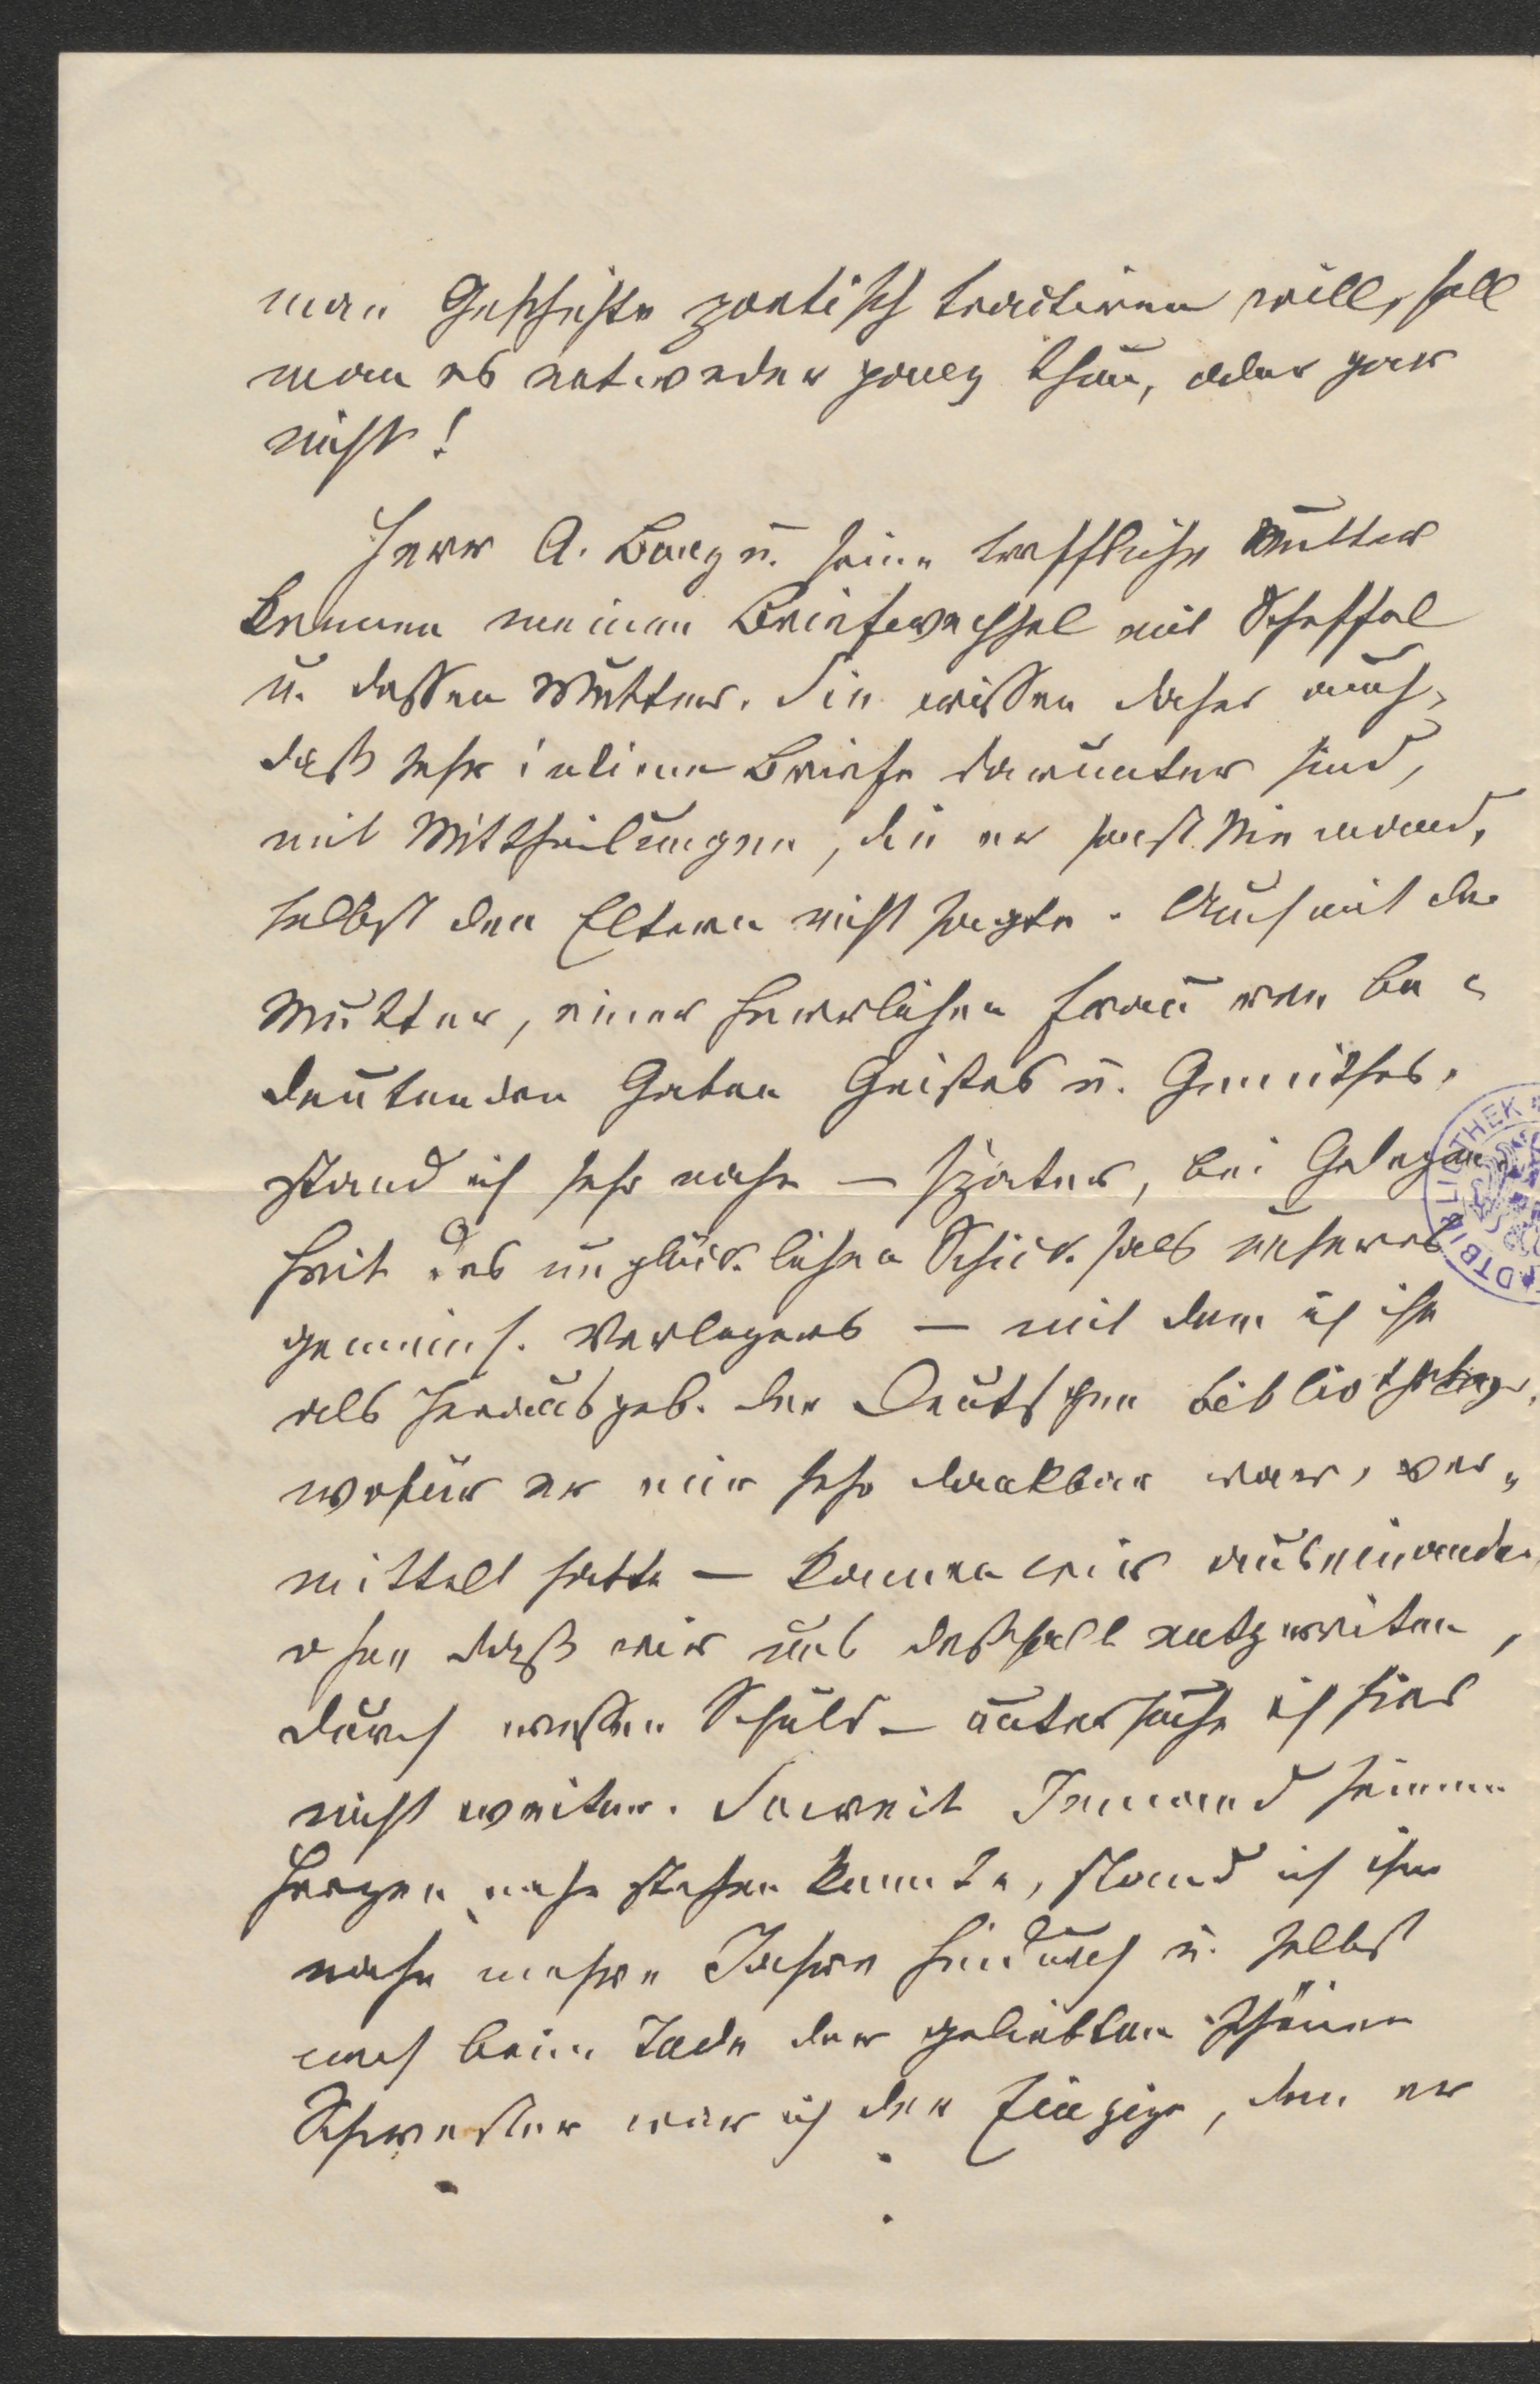 man Geschichte poetisch tractiren will, soll
man es entweder ganz thun, oder gar
nicht!
Herr A. Bong u. seine treffliche Mutter
kennen meinen Briefwechsel mit Scheffel
u. dessen Mutter. Sie wissen daher auch,
daß sehr intime Briefe darunter sind,
mit Mittheilungen, die er sonst Niemand,
selbst den Eltern nicht sagte. Auch mit der
Mutter, einer herrlichen Frau von be-
deutenden Gaben Geistes u. Gemüthes,
stand ich sehr nahe — später, bei Gelegen-
heit des unglücklichen Schicksals unseres
gemeins. Verlegers — mit dem ich ihn
als Herausgeb. der Deutschen Bibliothek
wofür er mir sehr dankbar war, ver-
mittelt hatte — kamen wir auseinander,
ohne daß wir uns deßhalb entzweiten,
durch wessen Schuld — untersuche ich hier
nicht weiter. Soweit Jemand seinem
Herzen nahe stehen konnte, stand ich ihm
nahe mehre Jahre hindurch u. selbst
noch beim Tode der geliebten schönen
Schwester war ich der Einzige, dem er
DTBIBLIOTHEK